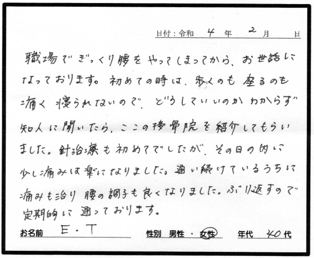 日付：令和 4 年 2 月 日
職場でぎっくり腰をやってしまってから、お世話に
なっております。初めての時は、歩くのも座るのも
痛く寝られないので、どうしていいのかわからず
知人に聞いたら、ここの接骨院を紹介してもらい
ました。針治療も初めてでしたが、その日の内に
少し痛みは楽になりました。通い続けているうちに
痛みも治り腰の調子も良くなりました。ぶり返すので
定期的に通っております。
お名前 E・T 性別 男性・女性 年代 40代